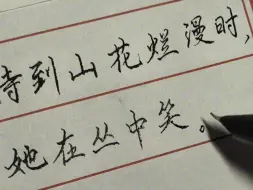 待到山花烂漫时，
她在丛中笑。